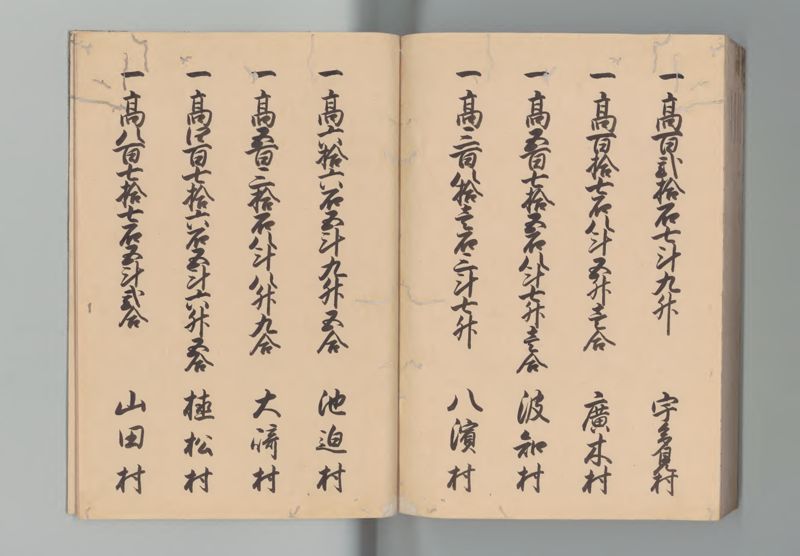 一 髙百弐拾石七斗九升 宇多見村
一 髙百拾七石八斗五升壱合 廣木村
一 髙五百七拾五石八斗七升壱合 波知村
一 髙三百八拾壱石三斗七升 八濱村
一 髙六拾六石五斗九升五合 池迫村
一 髙五百三拾石八斗八升九合 大﨑村
一 髙四百七拾六石五斗六升五合 植松村
一 髙八百七拾七石五斗弐合 山田村